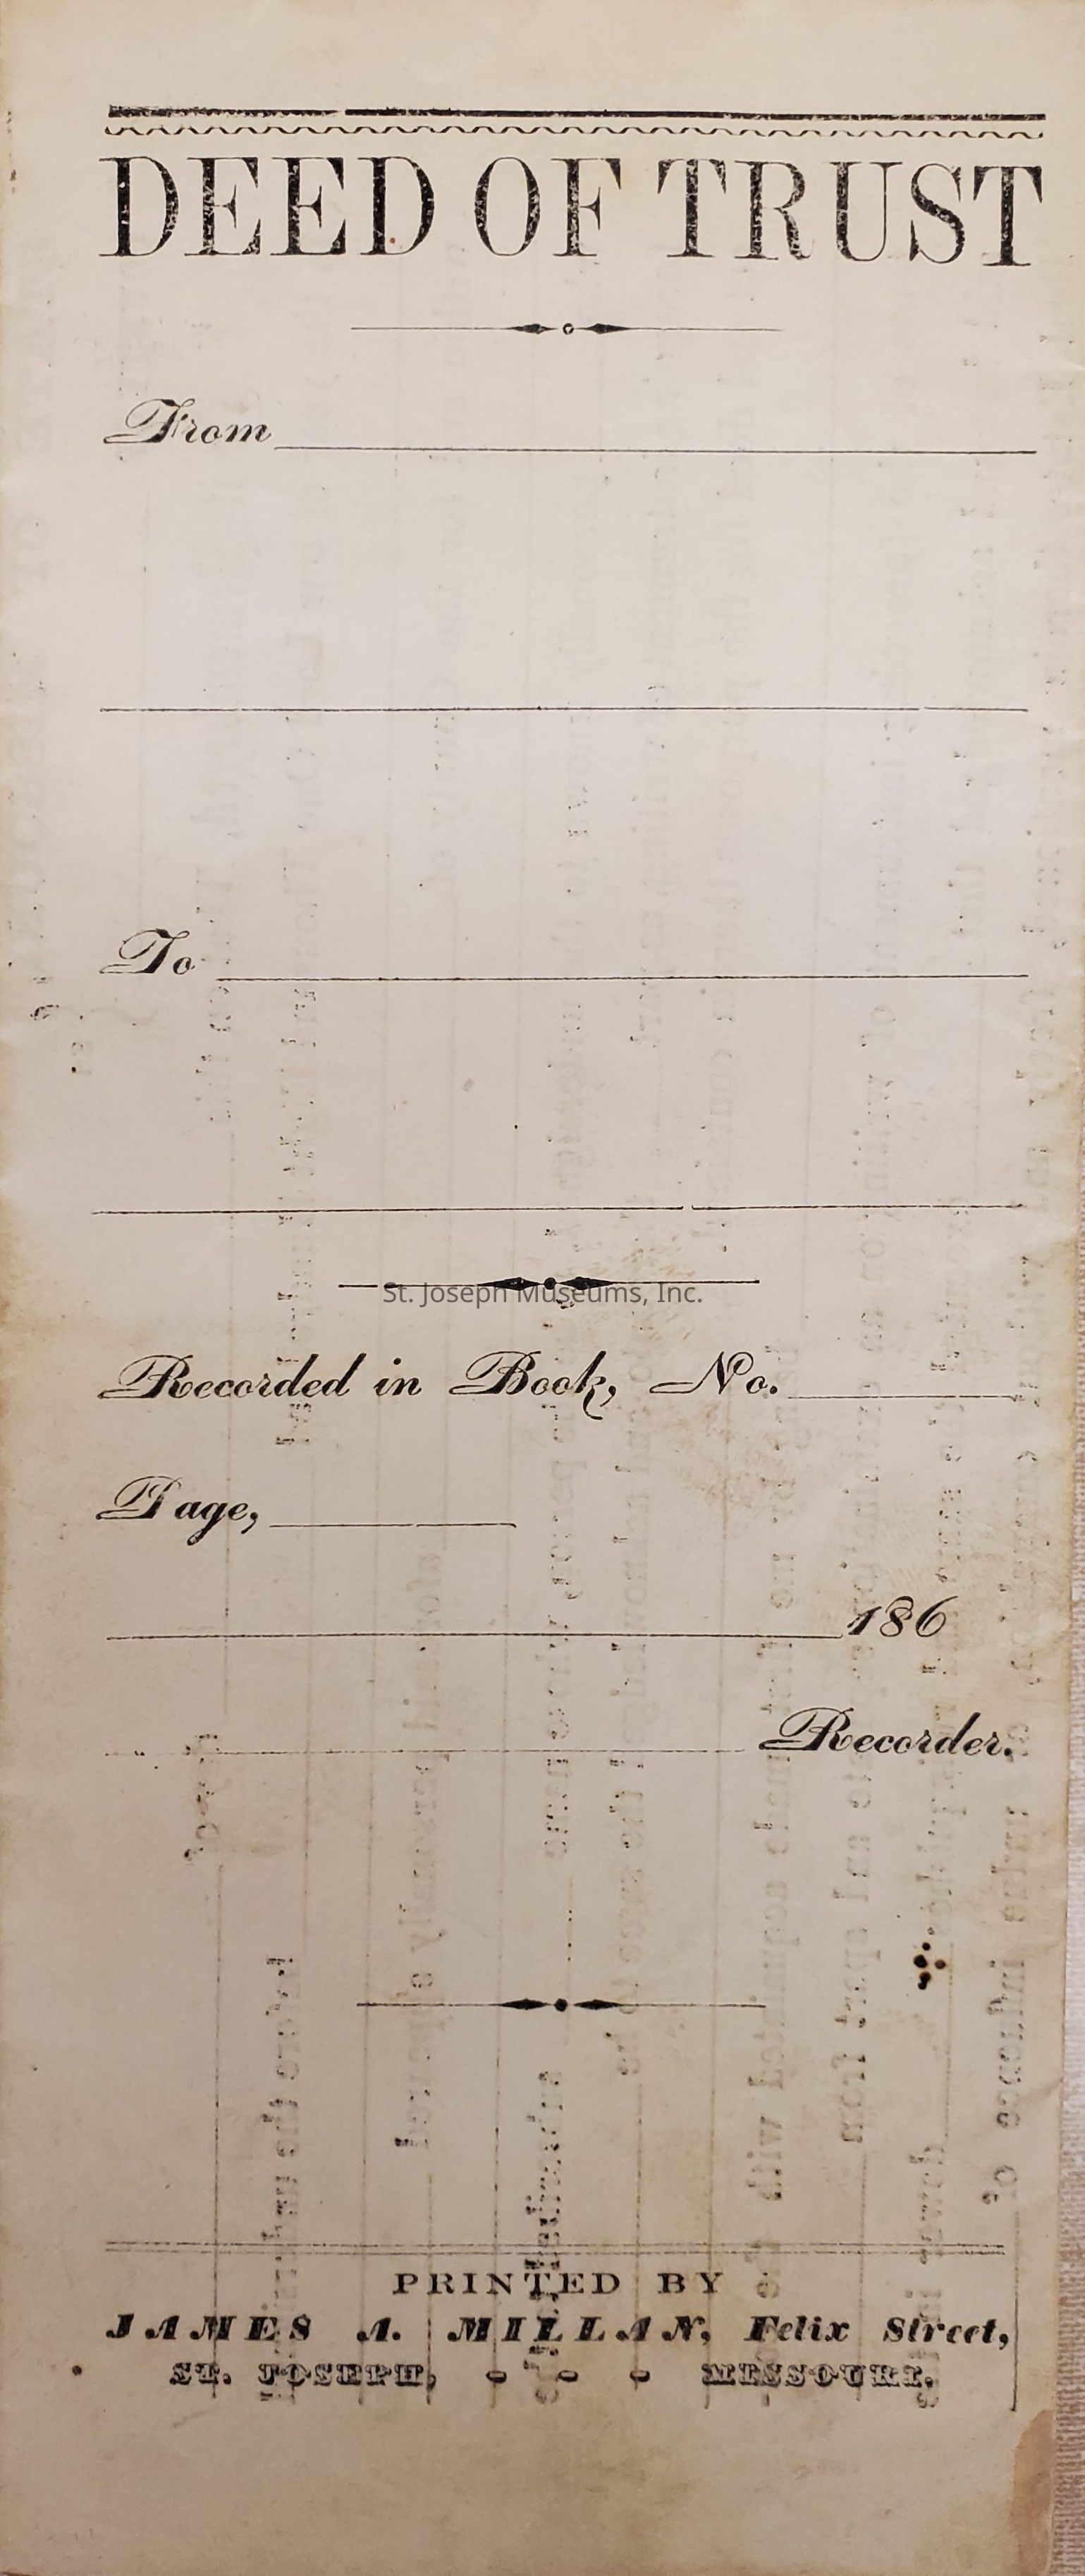 DEED OF TRUST
From
To
St. Joseph Museums, Inc.
Recorded in Book, No.
Page,
186
Recorder.
PRINTED BY
JAMES A. MILLAN, Felix Street,
ST. JOSEPH, - - - MISSOURI.